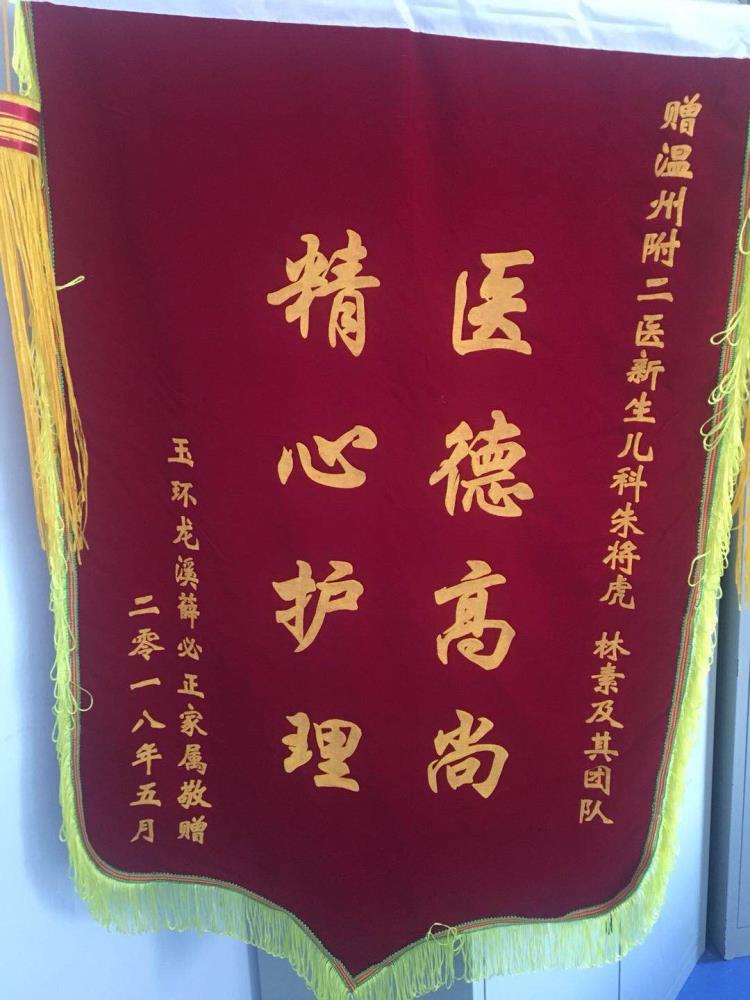 赠温州附二医新生儿科朱将虎 林素及其团队
医德高尚
精心护理
玉环龙溪薛必正家属敬赠
二零一八年五月